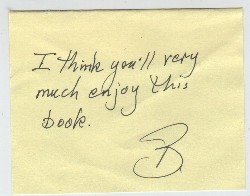 I think you'll very
much enjoy this
book.
B